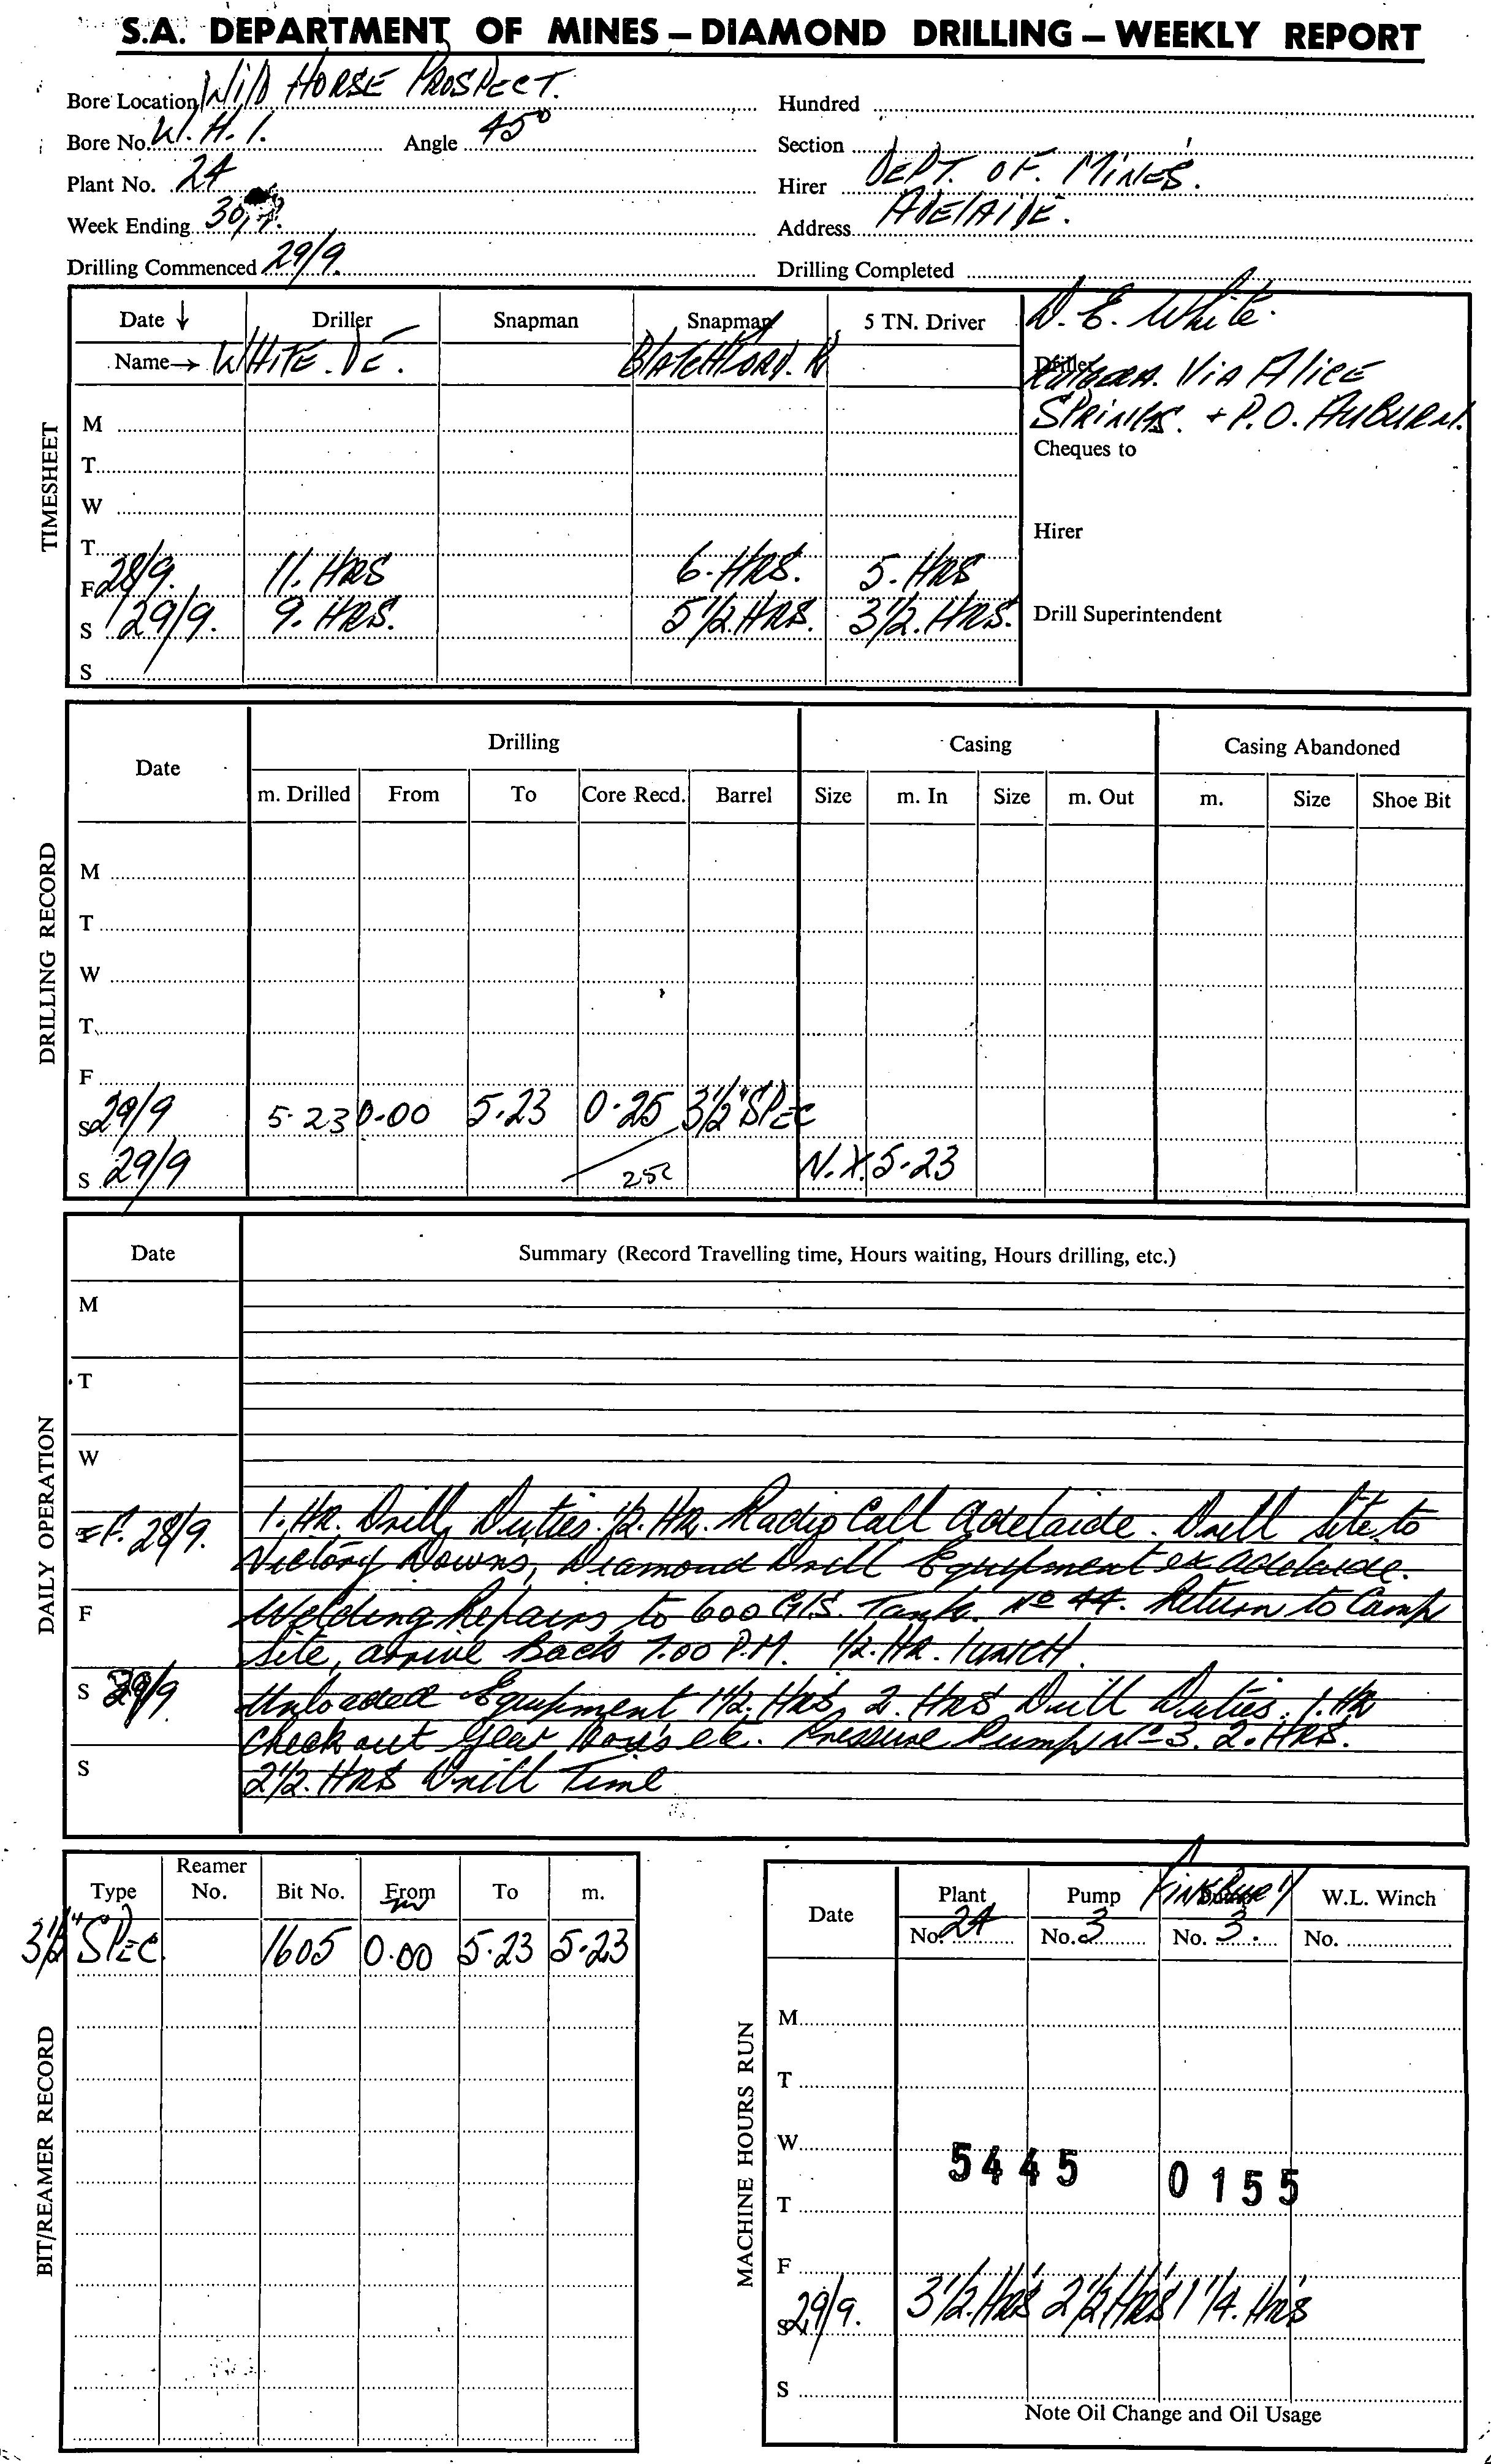 S.A. DEPARTMENT OF MINES – DIAMOND DRILLING – WEEKLY REPORT
Bore Location WilD HORSE PROSPECT.
Hundred
Bore No. W. H. 1. Angle 45°
Section
Plant No. 24
Hirer DEPT. OF. MiNES.
Week Ending 30/9.
Address ADElAiDE.
Drilling Commenced 29/9.
Drilling Completed
TIMESHEET
Date ↓ Driller Snapman Snapman 5 TN. Driver
D. E. White.
Name→ WHiTE. DE. BlATCHFORD. R
Driller
ViA AlicE
SPRiNGS. + P.O. AUBURN.
Cheques to
M
T
W
T
Hirer
F 28/9. 11. HRS 6. HRS. 5. HRS
S 29/9. 9. HRS. 5 1/2. HRS. 3 1/2. HRS.
Drill Superintendent
S
DRILLING RECORD
Date Drilling Casing Casing Abandoned
m. Drilled From To Core Recd. Barrel Size m. In Size m. Out m. Size Shoe Bit
M
T
W
T
F
S 29/9 5.23 0.00 5.23 0.25 3 1/2" SPEC
S 29/9 N.X. 5.23
DAILY OPERATION
Date Summary (Record Travelling time, Hours waiting, Hours drilling, etc.)
M
T
W
F. 28/9. 1. HR. Drill Duties. 1/2. HR. Radio Call Adelaide. Drill Site to
Victory Downs, Diamond Drill Equipment ex Adelaide.
F Welding Repairs to 600 G/S. Tank. No 44. Return to Camp
Site, arrive Back 7.00 P.M. 1/2. HR. lUNCH.
S 29/9 Unloaded Equipment 1 1/2. HRS, 2. HRS Drill Duties. 1. HR
Check out Gear Box's etc. Pressure Pump No 3. 2. HRS.
S 2 1/2. HRS Drill Time
BIT/REAMER RECORD
Type Reamer No. Bit No. From To m.
3 1/2" SPEC. 1605 0.00 5.23 5.23
MACHINE HOURS RUN
Date Plant Pump FiNSBURY W.L. Winch
No. 24 No. 3 No. 3. No.
M
T
W
5445 0155
T
F
S 29/9. 3 1/2. HRS 2 1/2 HRS 1 1/4. HRS
S
Note Oil Change and Oil Usage